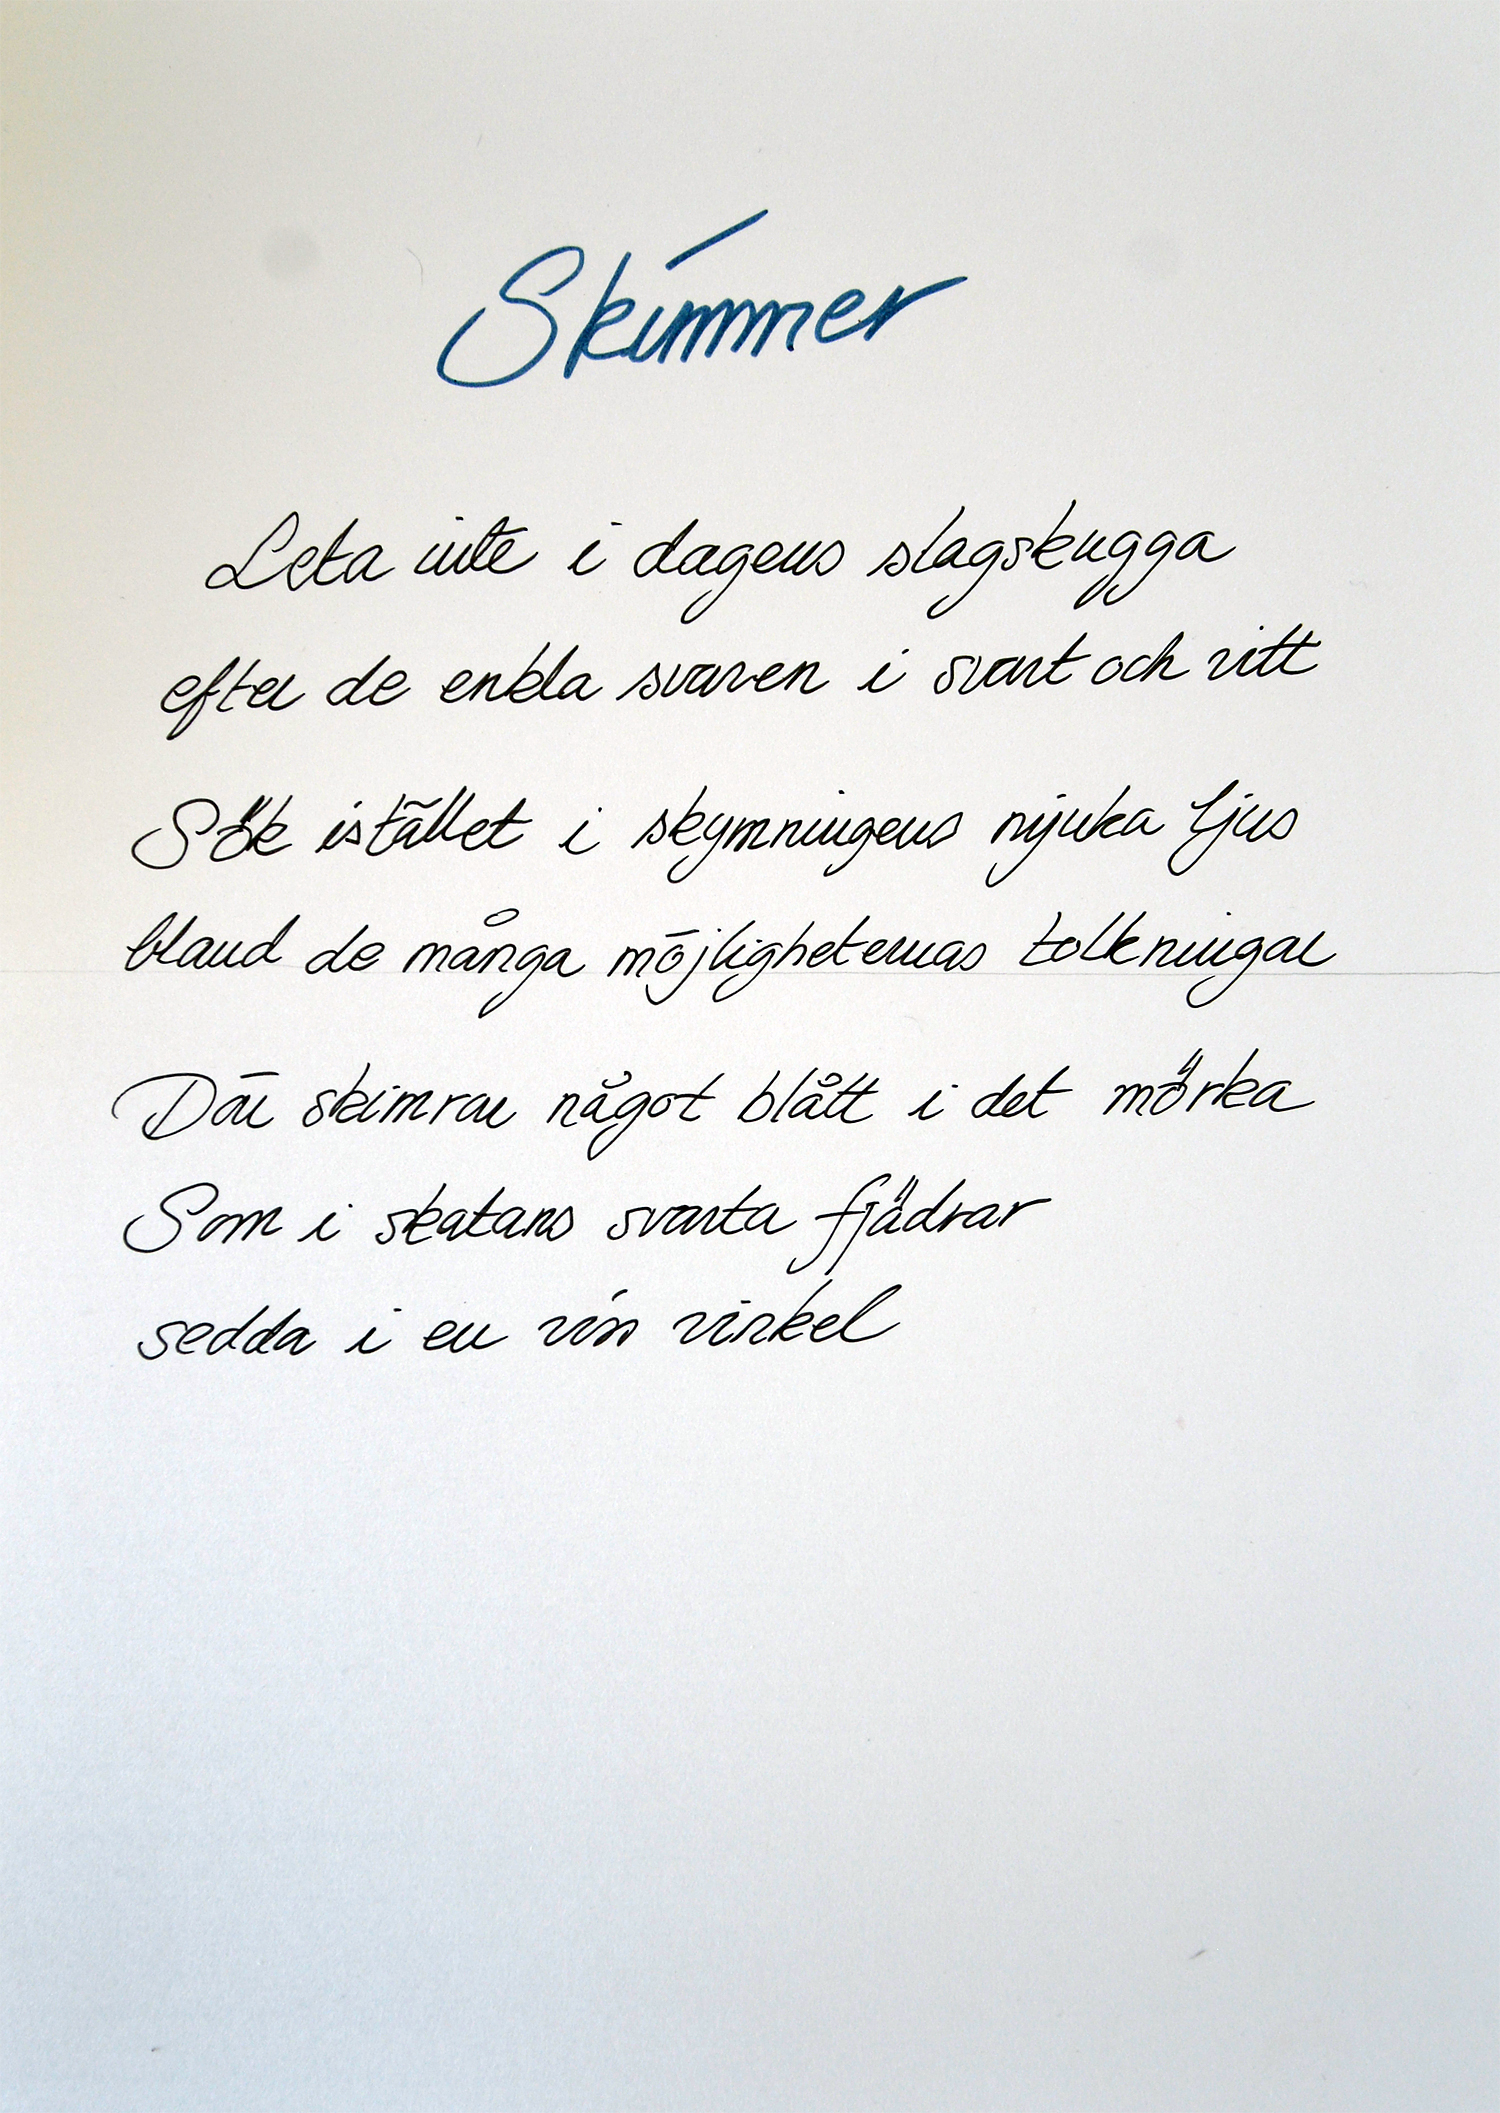 Skimmer
Leta inte i dagens slagskugga
efter de enkla svaren i svart och vitt
Sök istället i skymningens mjuka ljus
bland de många möjligheternas tolkningar
Där skimrar något blått i det mörka
Som i skatans svarta fjädrar
sedda i en viss vinkel